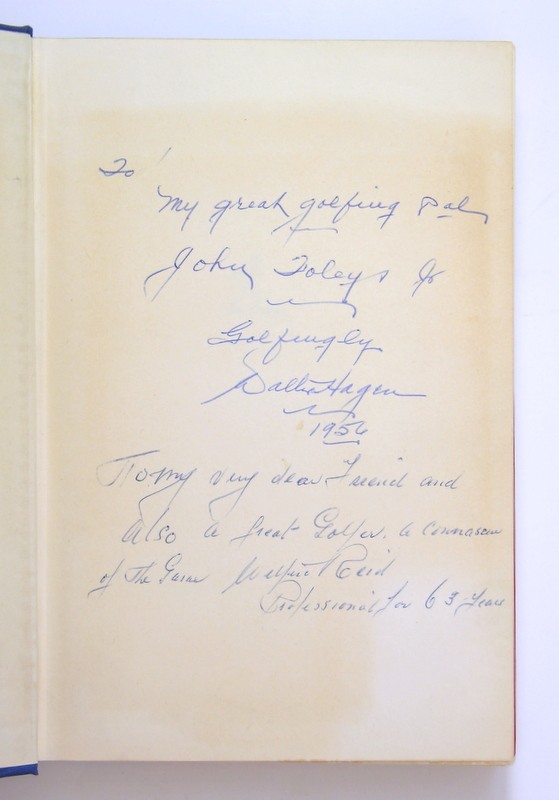 To
My great golfing Pal
John Foleys Jr
Golfingly
Walter Hagen
1956
To my very dear Friend and
Also a great Golfer. a Connaseur
of The Game Wilfrid Reid
Professional for 63 years